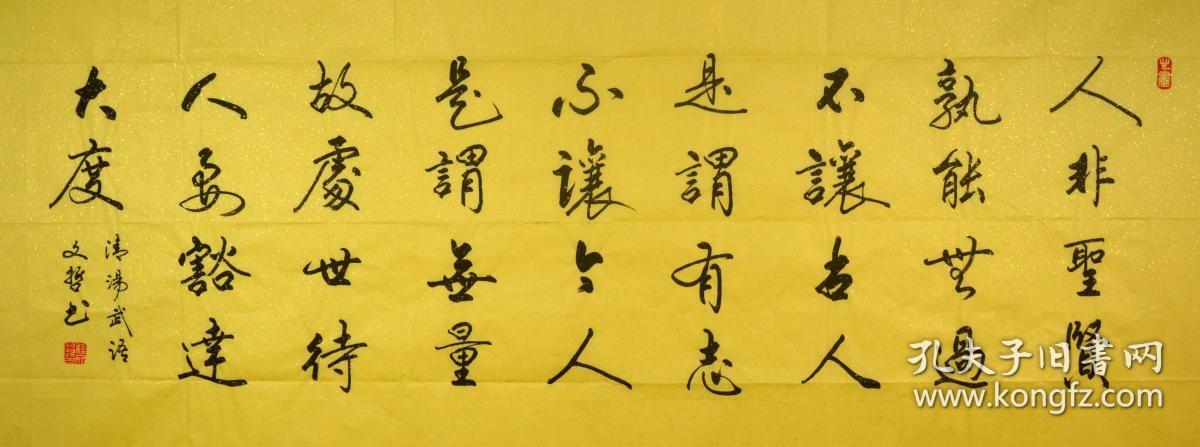 人非聖賢
孰能無過
不讓古人
是謂有志
不讓今人
是謂無量
故處世待
人要豁達
大度
清湯武語
文哲书
孔夫子旧書网
www.kongfz.com